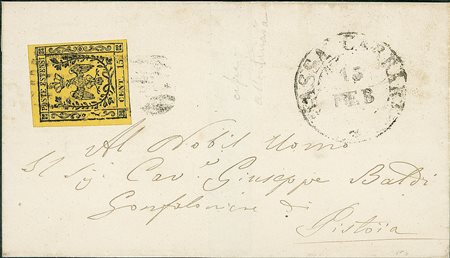 POSTE ESTENSI
CENT. 15
MASSA CARRARA
15
FEB
Al Nobil Uomo
Il Sig. Cav. Giuseppe Baldi
Gonfaloniere di
Pistoia